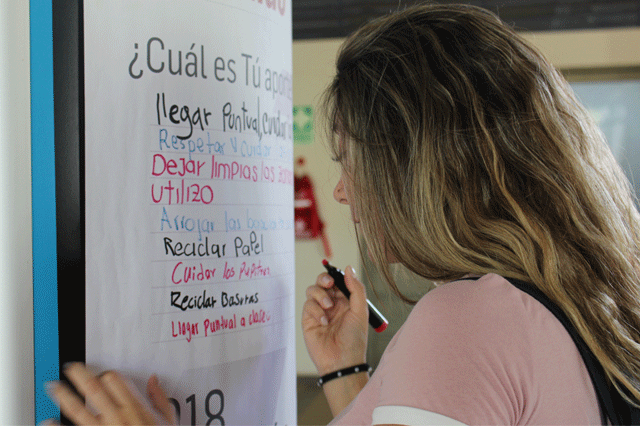 ¿Cuál es Tú
llegar Puntual, cuidar
Respetar y cuidar
Dejar limpias las
utilizo
Arrojar las
Reciclar Papel
Cuidar los Pupitres
Reciclar Basuras
Llegar puntual a clase.
018